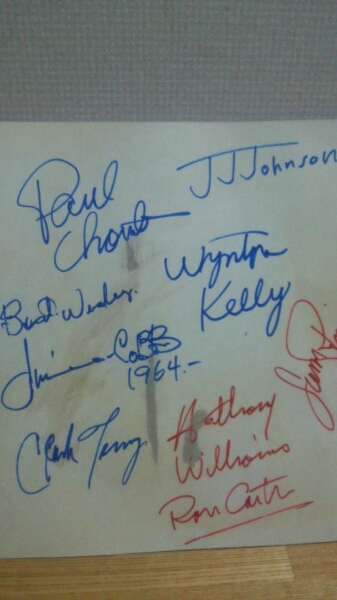 Paul
JJ Johnson
Wynton
Kelly
Best Wishes,
Jimmie Cobb
1964.-
Clark Terry
Anthony
Williams
Ron Carter